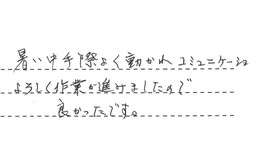 暑い中手際よく動かれ コミュニケーション
よろしく作業が進みましたので
良かったです。